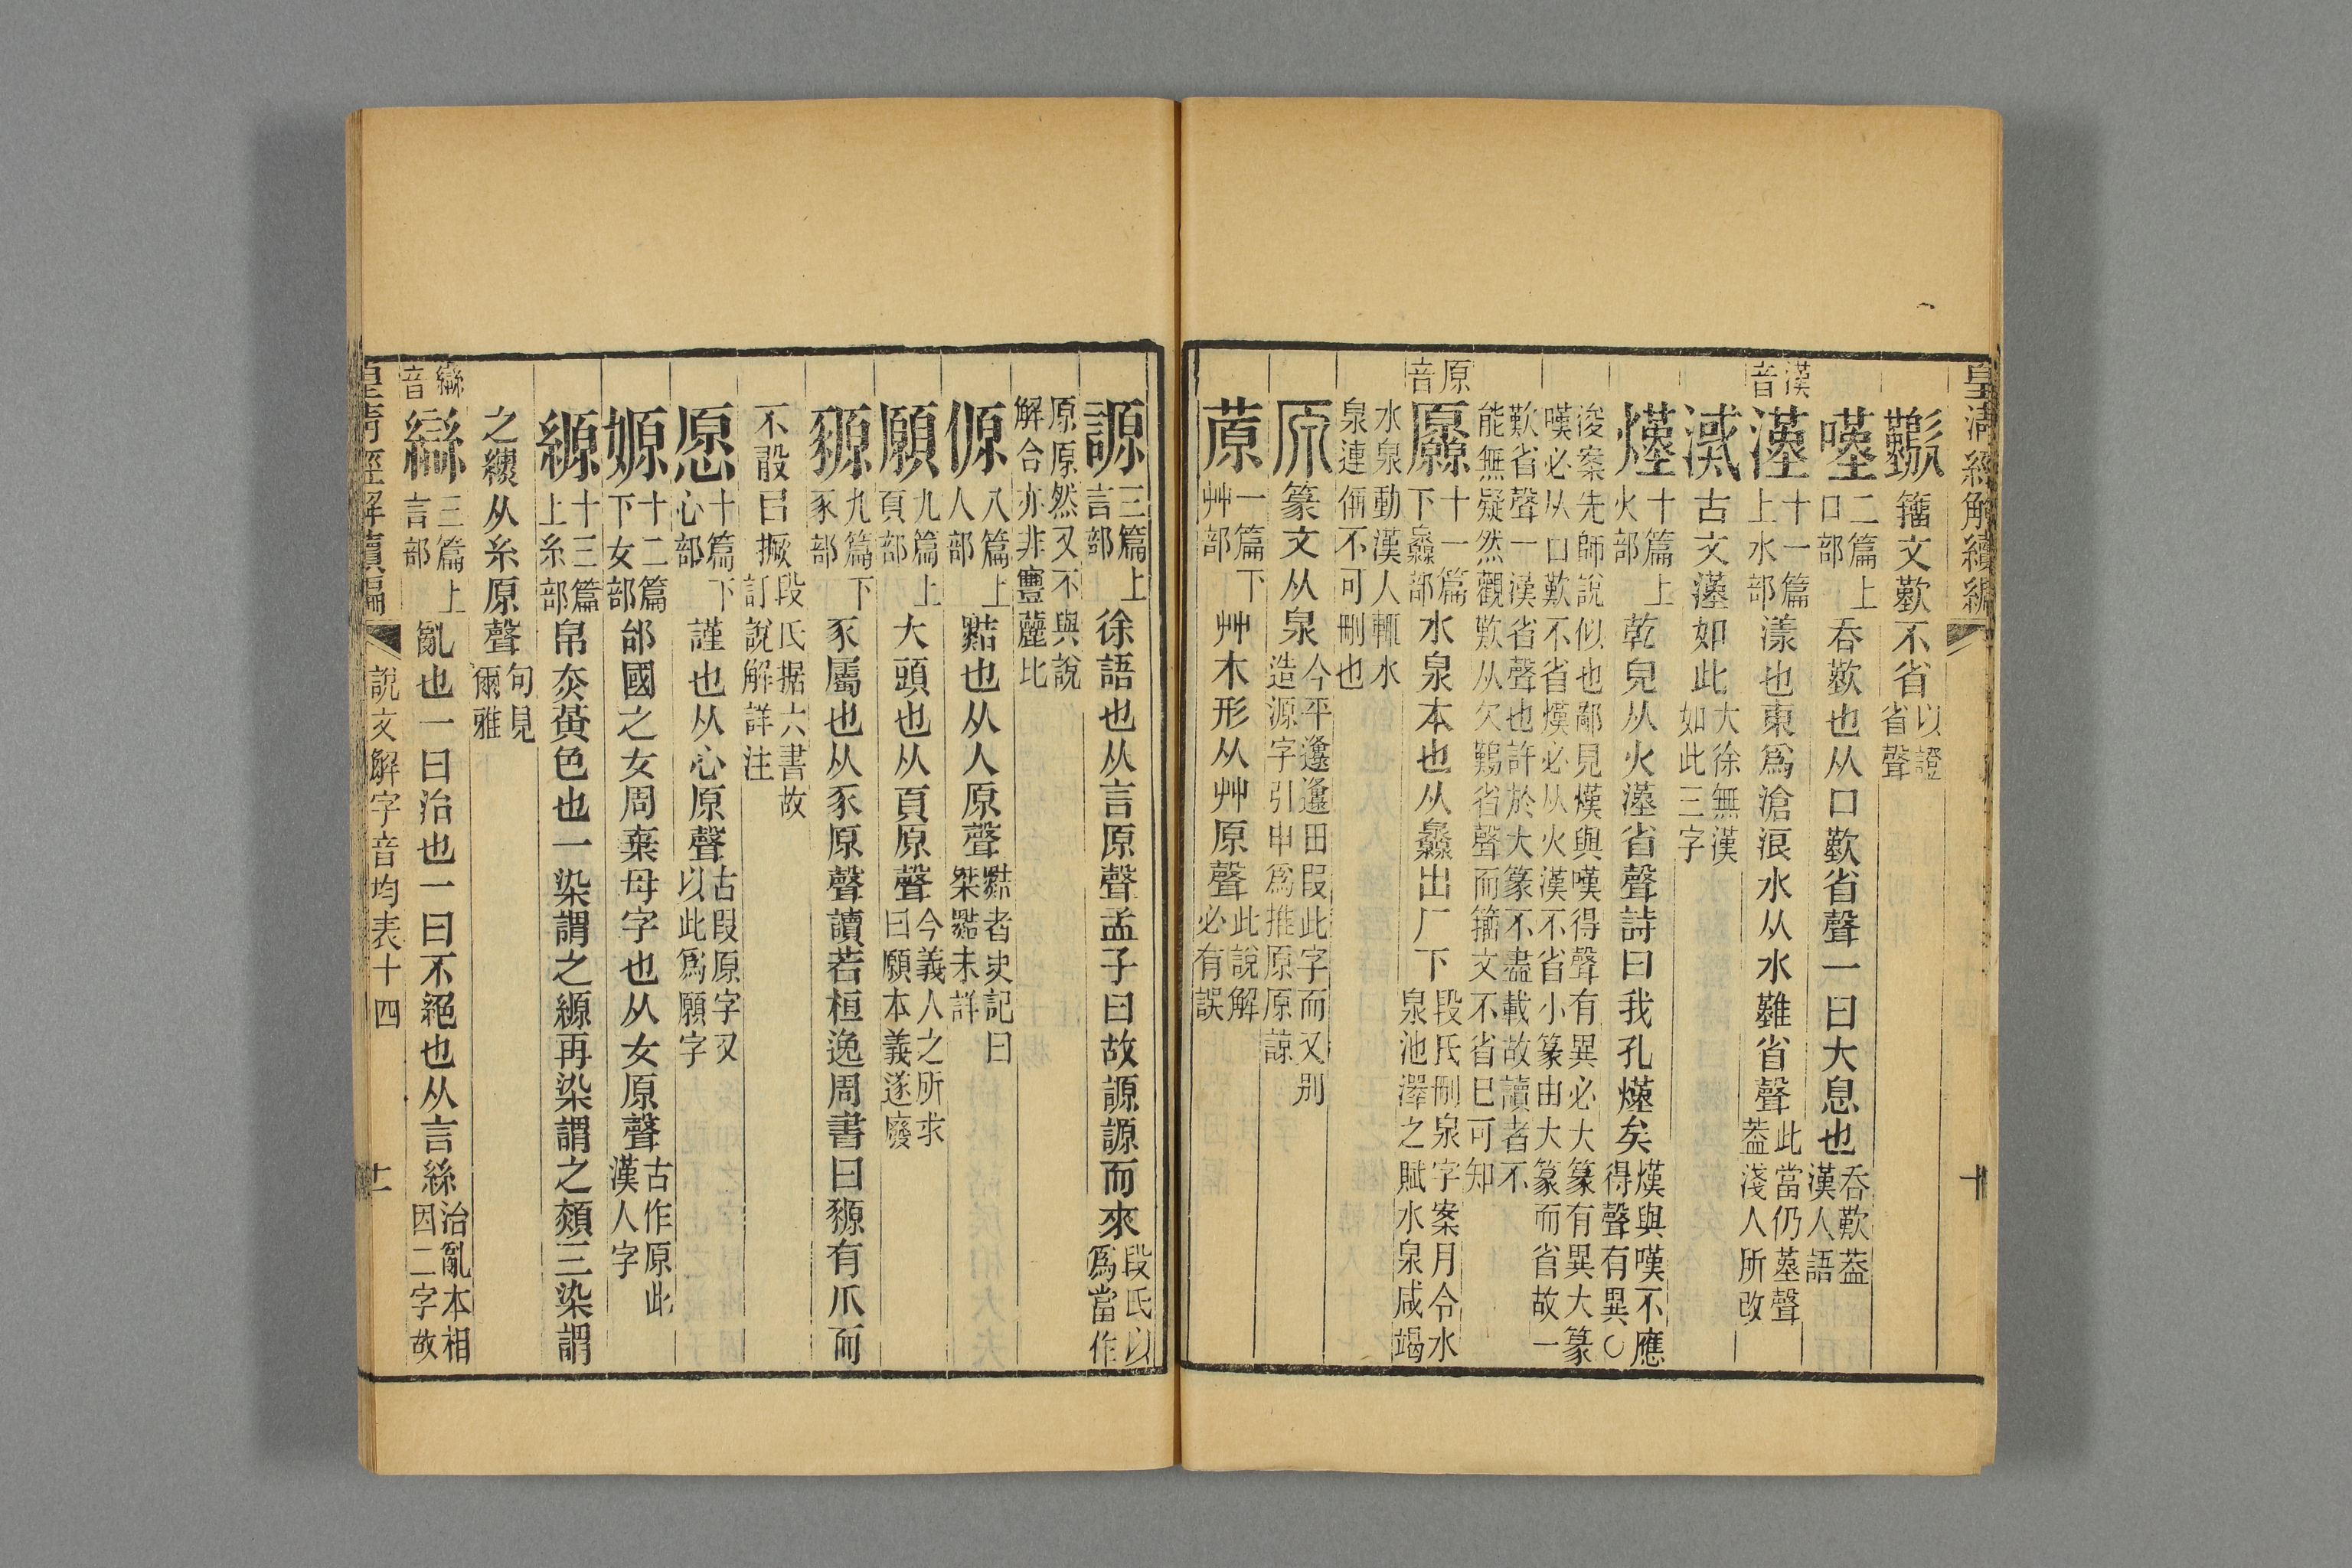 皇清經解續編 十
籒文歎不省以證省聲
嘆二篇上口部吞歎也从口歎省聲一曰大息也吞歎葢漢人語
漢音漢十一篇上水部漾也東爲滄浪水从水難省聲此當仍堇聲葢淺人所改
古文漢如此大徐無漢如此三字
熯十篇上火部乾皃从火漢省聲詩曰我孔熯矣熯與嘆不應得聲有異○
浚案先師說似也鄙見熯與嘆得聲有異必大篆有異大篆
嘆必从口歎不省熯必从火漢不省小篆由大篆而省故一
歎省聲一漢省聲也許於大篆不盡載故讀者不
能無疑然觀歎从欠鷬省聲而籒文不省巳可知
原音厵十一篇下灥部水泉本也从灥出厂下段氏刪泉字案月令水泉池澤之賦水泉咸竭
水泉動漢人輒水
泉連偁不可刪也
原篆文从泉今平邍邍田叚此字而又別造源字引申爲推原原諒
蒝一篇下艸部艸木形从艸原聲此說解必有誤
謜三篇上言部徐語也从言原聲孟子曰故謜謜而來段氏以爲當作
原原然又不與說
解合亦非豐麓比
傆八篇上人部黠也从人原聲黠者史記曰桀黠未詳
願九篇上頁部大頭也从頁原聲今義人之所求曰願本義遂廢
豲九篇下豕部豕屬也从豕原聲讀若桓逸周書曰豲有爪而
不敢㠯撅段氏据六書故訂說解詳注
愿十篇下心部謹也从心原聲古叚原字又以此爲願字
嫄十二篇下女部邰國之女周棄母字也从女原聲古作原此漢人字
縓十三篇上糸部帛赤黃色也一染謂之縓再染謂之䞓三染謂
之纁从糸原聲句見爾雅
䜌音䜌三篇上言部亂也一曰治也一曰不絕也从言絲治亂本相因二字故
皇清經解續編 說文解字音均表十四 十一